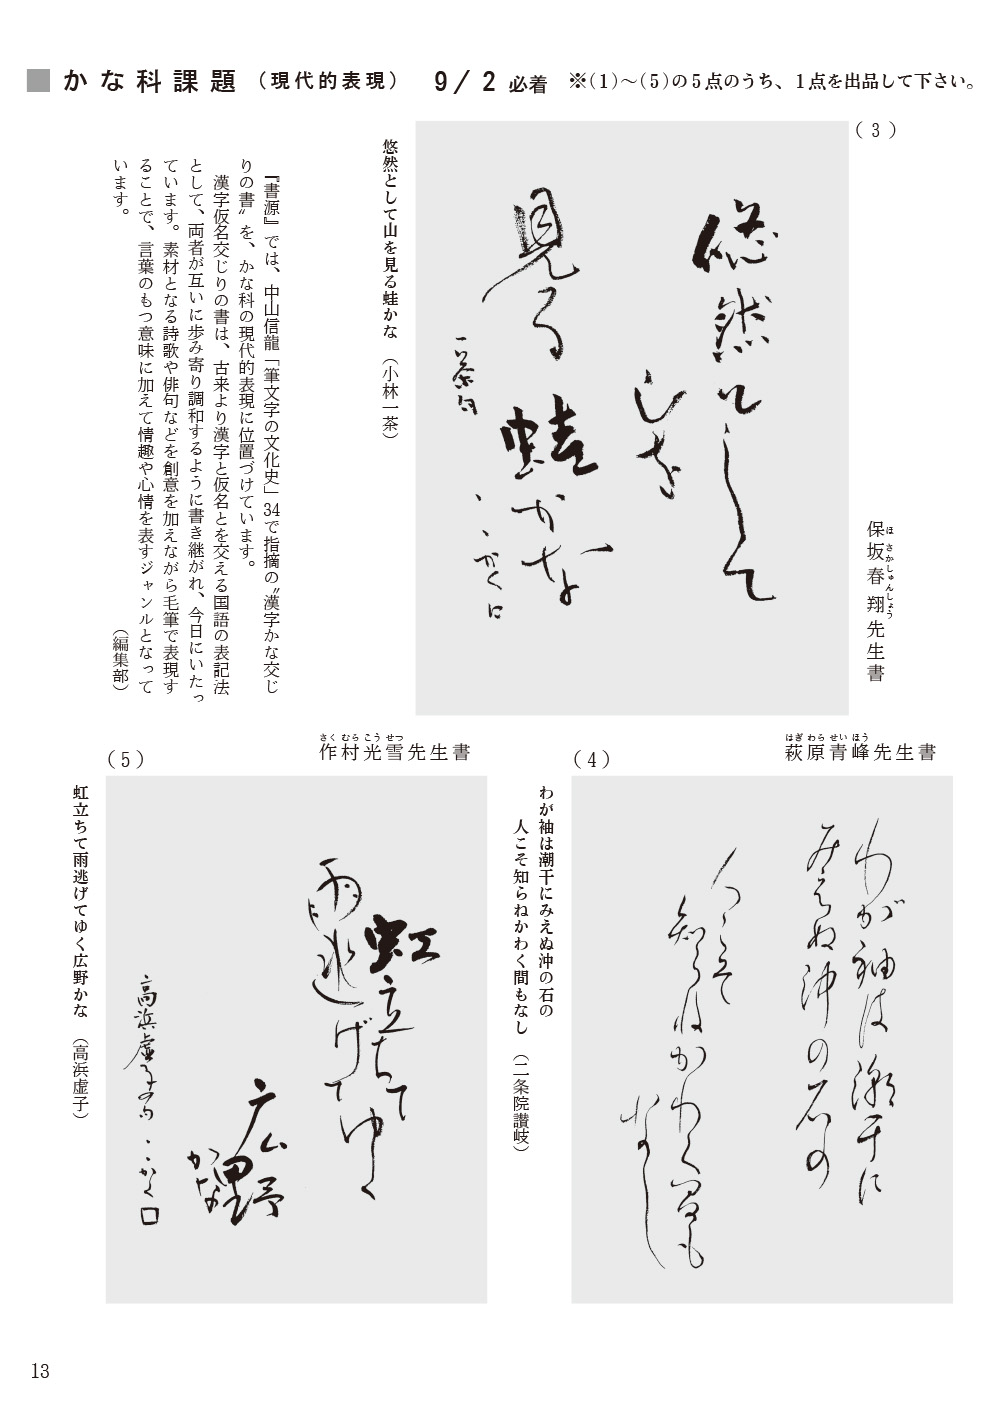 ■かな科課題（現代的表現） 9/2必着 ※(1)～(5)の5点のうち、1点を出品して下さい。
(3)
保坂春翔先生書
ほさかしゅんしょう
悠然として
山を
見る
蛙かな
一茶句
、、かくに
悠然として山を見る蛙かな （小林一茶）
『書源』では、中山信龍「筆文字の文化史」34で指摘の〝漢字かな交じ
りの書〟を、かな科の現代的表現に位置づけています。
漢字仮名交じりの書は、古来より漢字と仮名とを交える国語の表記法
として、両者が互いに歩み寄り調和するように書き継がれ、今日にいたっ
ています。素材となる詩歌や俳句などを創意を加えながら毛筆で表現す
ることで、言葉のもつ意味に加えて情趣や心情を表すジャンルとなって
います。
（編集部）
(4)
萩原青峰先生書
はぎわらせいほう
わが袖は潮干に
みえぬ沖の石の
人こそ
知らねかわく間も
なし
わが袖は潮干にみえぬ沖の石の
人こそ知らねかわく間もなし （二条院讃岐）
(5)
作村光雪先生書
さくむらこうせつ
虹立ちて
雨逃げてゆく
広野
かな
高浜虚子の句 、、かく□
虹立ちて雨逃げてゆく広野かな （高浜虚子）
13